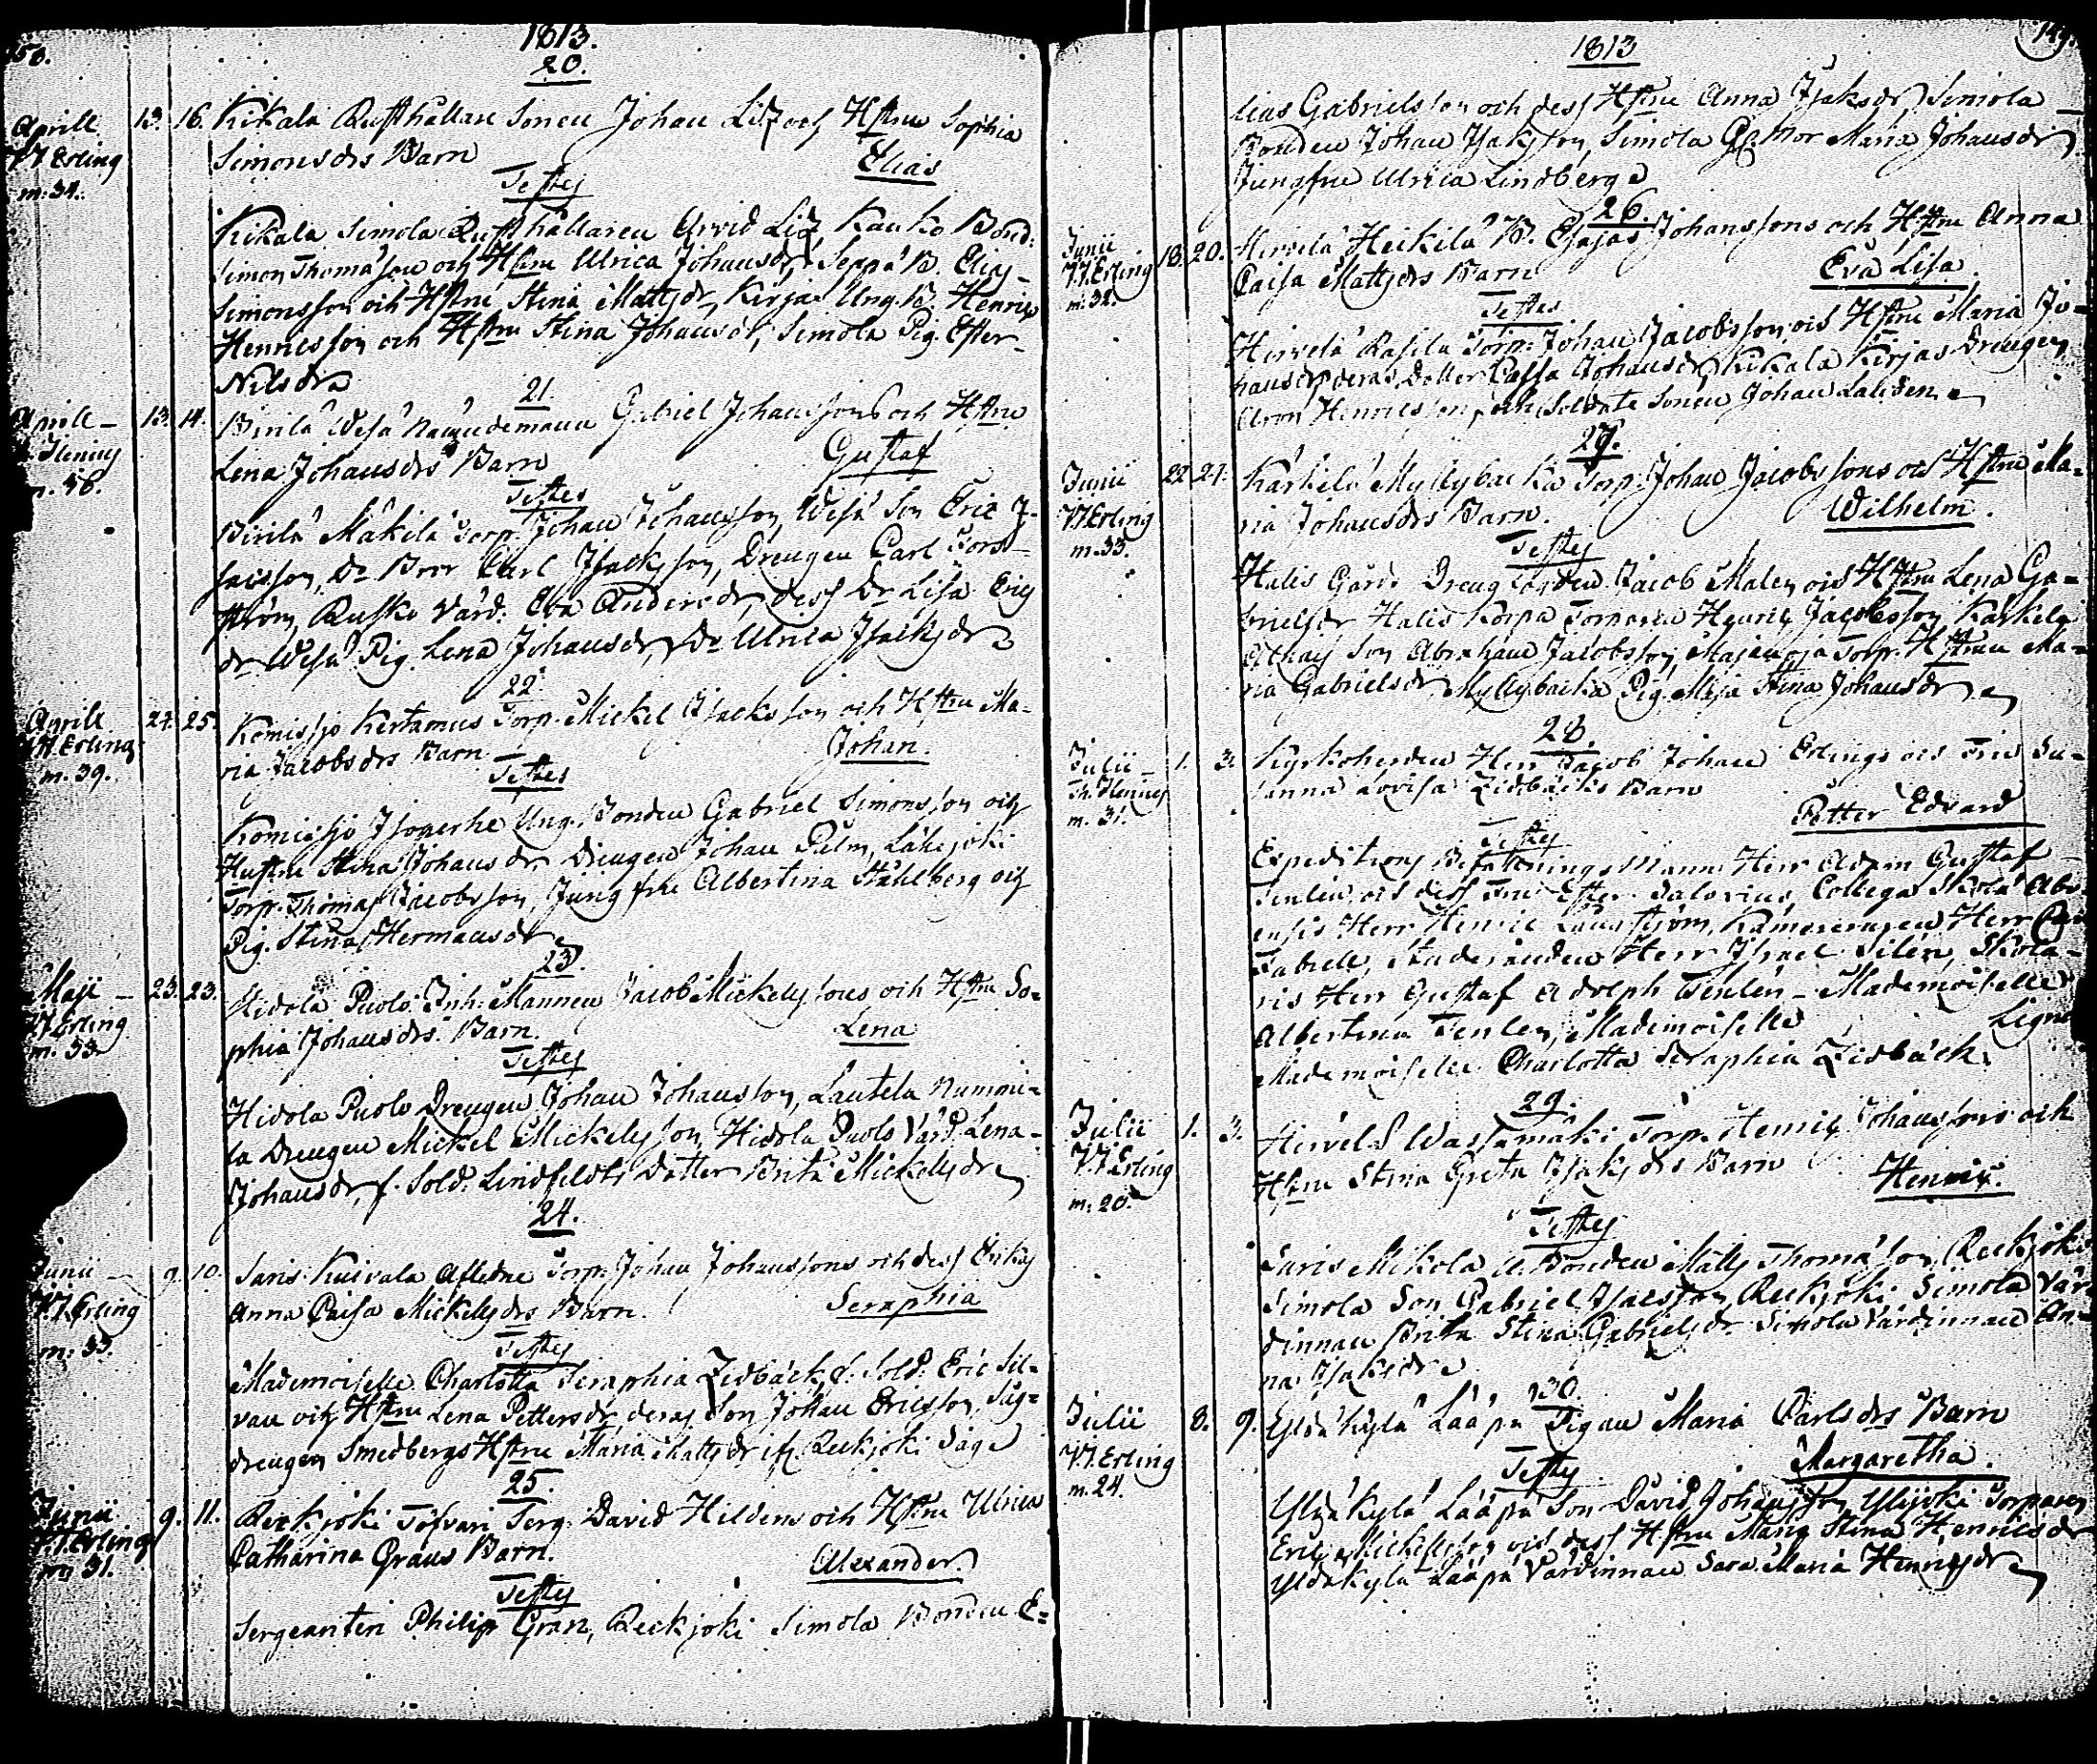 1813.
20.
Aprill 13. 16. Kikala Rusthållare Sonen Johan Lid och Hstru Sophia
J J Erling Simonsdrs Barn Elias
m: 34. Testes
Kikala Simola Rusthållaren Arvid Lid Kauko Bond:
Simon Thomasson och Hstru Ulrica Johansdr, Seppä B. Elias
Simonsson och Hstru Stina Mattsdr, Kirjas Ung. B. Henric
Henricsson och Hstru Stina Johansdr, Simola Pig. Ester
Nilsdr
21.
Aprill 13. 14. Pirilä Wesa Nämndemann Gabriel Johanssons och Hstru
Lena Johansdrs Barn Gustaf
Testes
Pirilä Mäkilä Torp. Johan Johansson, Wesa Son Eric I-
sacsson, Do Bror Carl Isacksson, Drengen Carl Fors-
ström, Rusko Värd: Eva Andersdr, dess Dr Lisa Erics
dr Wesa Pig. Lena Johansdr, Do Ulrica Isacksdr
22.
Aprill 24. 25. Komissjo Kertamus Torp. Mickel Isacksson och Hstru Ma-
J J Erling ria Jacobsdrs Barn Johan.
m. 39. Testes
Ung. Bonden Gabriel Simonsson och
Hustru Stina Johansdr Drengen Johan Palm,
Torp. Thomas Jacobsson, Jungfru Albertina Ståhlberg och
Pig. Stina Hermansdr
23.
Maji 23. 23. Hidola Puolo Inh: Mannen Jacob Mickelssons och Hstru So-
J J Erling phia Johansdrs Barn. Lena
m. 33 Testes
Hidola Puolo Drengen Johan Johansson, Lautela Nummi-
la Drengen Mickel Mickelsson, Hidola Puolo Värd. Lena
Johansdr, f. Sold. Lindfeldts Dotter Brita Mickelsdr
24.
Junii 9. 10. Saris Kuivala Aflidne Torp. Johan Johanssons och dess Enkas
J J Erling Anna Caisa Mickelsdrs Barn Seraphia
m: 33. Testes
Mademoiselle Charlotta Seraphia Zidbäck, f. Sold. Eric Sil-
van och Hstru Lena Pettersdr, deras Son Johan Ericsson, Såg-
drengen Smedbergs Hstru Maria Mattsdr ifr. Reckjoki Såg
25.
Junii 9. 11. Reckjoki Töfvari Serg. David Hildens och Hstru Ulrica
J J Erling Catharina Grans Barn. Alexander
m 31. Testes
Sergeanten Philip Gran, Reckjoki Simola Bonden E-
1813
149.
lias Gabrielsson och dess Hstru Anna Isaksdr Simola
Bonden Johan Isaksson, Simola Gl. Mor Maria Johansdr
Jungfru Ulrica Lindberg
26.
Junii 18. 20. Hirvelä Heikilä B. Esajas Johanssons och Hstru Anna
J J Erling Caisa Mattsdrs Barn Eva Lisa
m: 32. Testes
Hirvelä Rasila Torp. Johan Jacobsson och Hstru Maria Jo-
hansdr, deras Dotter Cajsa Johansdr, Kikala Kirjas Drengen
Aron Henricsson, och Soldate Sonen Johan
27.
Junii 22 27. Kärkilä Myllybacka Torp. Johan Jacobssons och Hstru Ma-
J J Erling ria Johansdrs Barn. Wilhelm.
m. 33. Testes
Halis Gårds Dreng Jacob Malen och Hstru Lena Ga-
brielsdr Halis Korpa Torparen Henric Jacobsson, Kärkelä
Son Abraham Jacobsson, Majanoja Torp. Hstrun Ma-
ria Gabrielsdr, Myllybacka Pig. Maja Stina Johansdr
28.
Julii 1. 3. Kyrkoherden Herr Jacob Johan Erlings och Fru Su-
sanna Lovisa Zidbäcks Barn
m. 31. Petter Edvard
Testes
Expeditions Befallningsmann Herr Adam Gustaf
Tenlén och dess Fru Ester Salovius, Collega Scholæ Abo-
ensis Herr Henric Långström, Kamereraren Herr
Studeranden Herr Israel Silén, Skola-
ris Herr Gustaf Adolph Tenlén - Mademoiselle
Albertina Tenlén, Mademoiselle
Mademoiselle Charlotta Seraphia Zidbäck
29.
Julii 1. 3. Torp. Henric Johanssons och
J J Erling Hstru Stina Greta Isaksdrs Barn Henric.
m. 20. Testes
Saris Mikola U. Bonden Matts Thomasson, Reckjoki
Simola Son Gabriel Isacsson, Reckjoki Simola Vär-
dinnan Brita Stina Gabrielsdr Simola Värdinnan An-
na Isaksdr
30.
Julii 8. 9. Yldäkylä Lääpä Pigan Maria Carlsdrs Barn
J J Erling Testes Margaretha.
m. 24.
Yldäkylä Lääpä Son David Johansson, Ylijoki Torparen
Eric Mickelsson och dess Hstru Maria Stina Henricsdr
Yldäkylä Lääpä Värdinnan Sara Maria Henricsdr